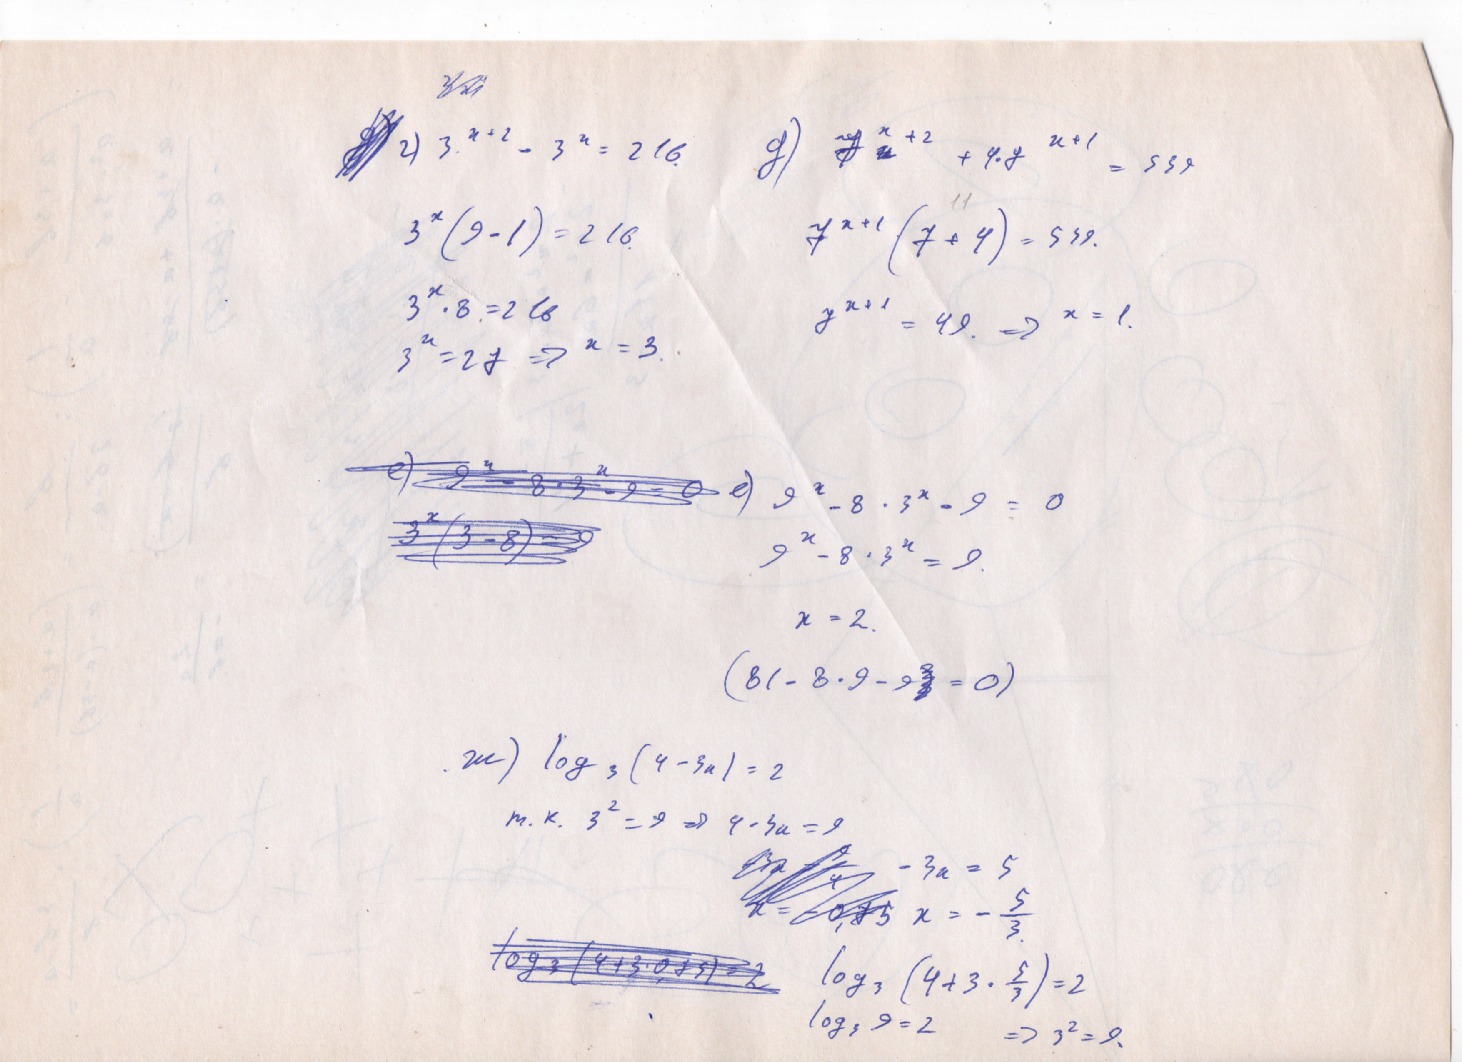 г) 3^{x+2} - 3^x = 216.
3^x (9 - 1) = 216.
3^x · 8 = 216
3^x = 27 => x = 3.
д) 7^{x+2} + 4·7^{x+1} = 539
11
7^{x+1} (7 + 4) = 539.
7^{x+1} = 49. => x = 1.
е) 9^x - 8 · 3^x - 9 = 0
3^x (3 - 8) = 9
е) 9^x - 8 · 3^x - 9 = 0
9^x - 8 · 3^x = 9.
x = 2.
(81 - 8 · 9 - 9 = 0)
ж) log_3 (4 - 3x) = 2
т.к. 3^2 = 9 => 4 - 3x = 9
- 3x = 5
x = - 5/3.
log_3 (4 + 3 · 5/3) = 2
log_3 9 = 2 => 3^2 = 9.